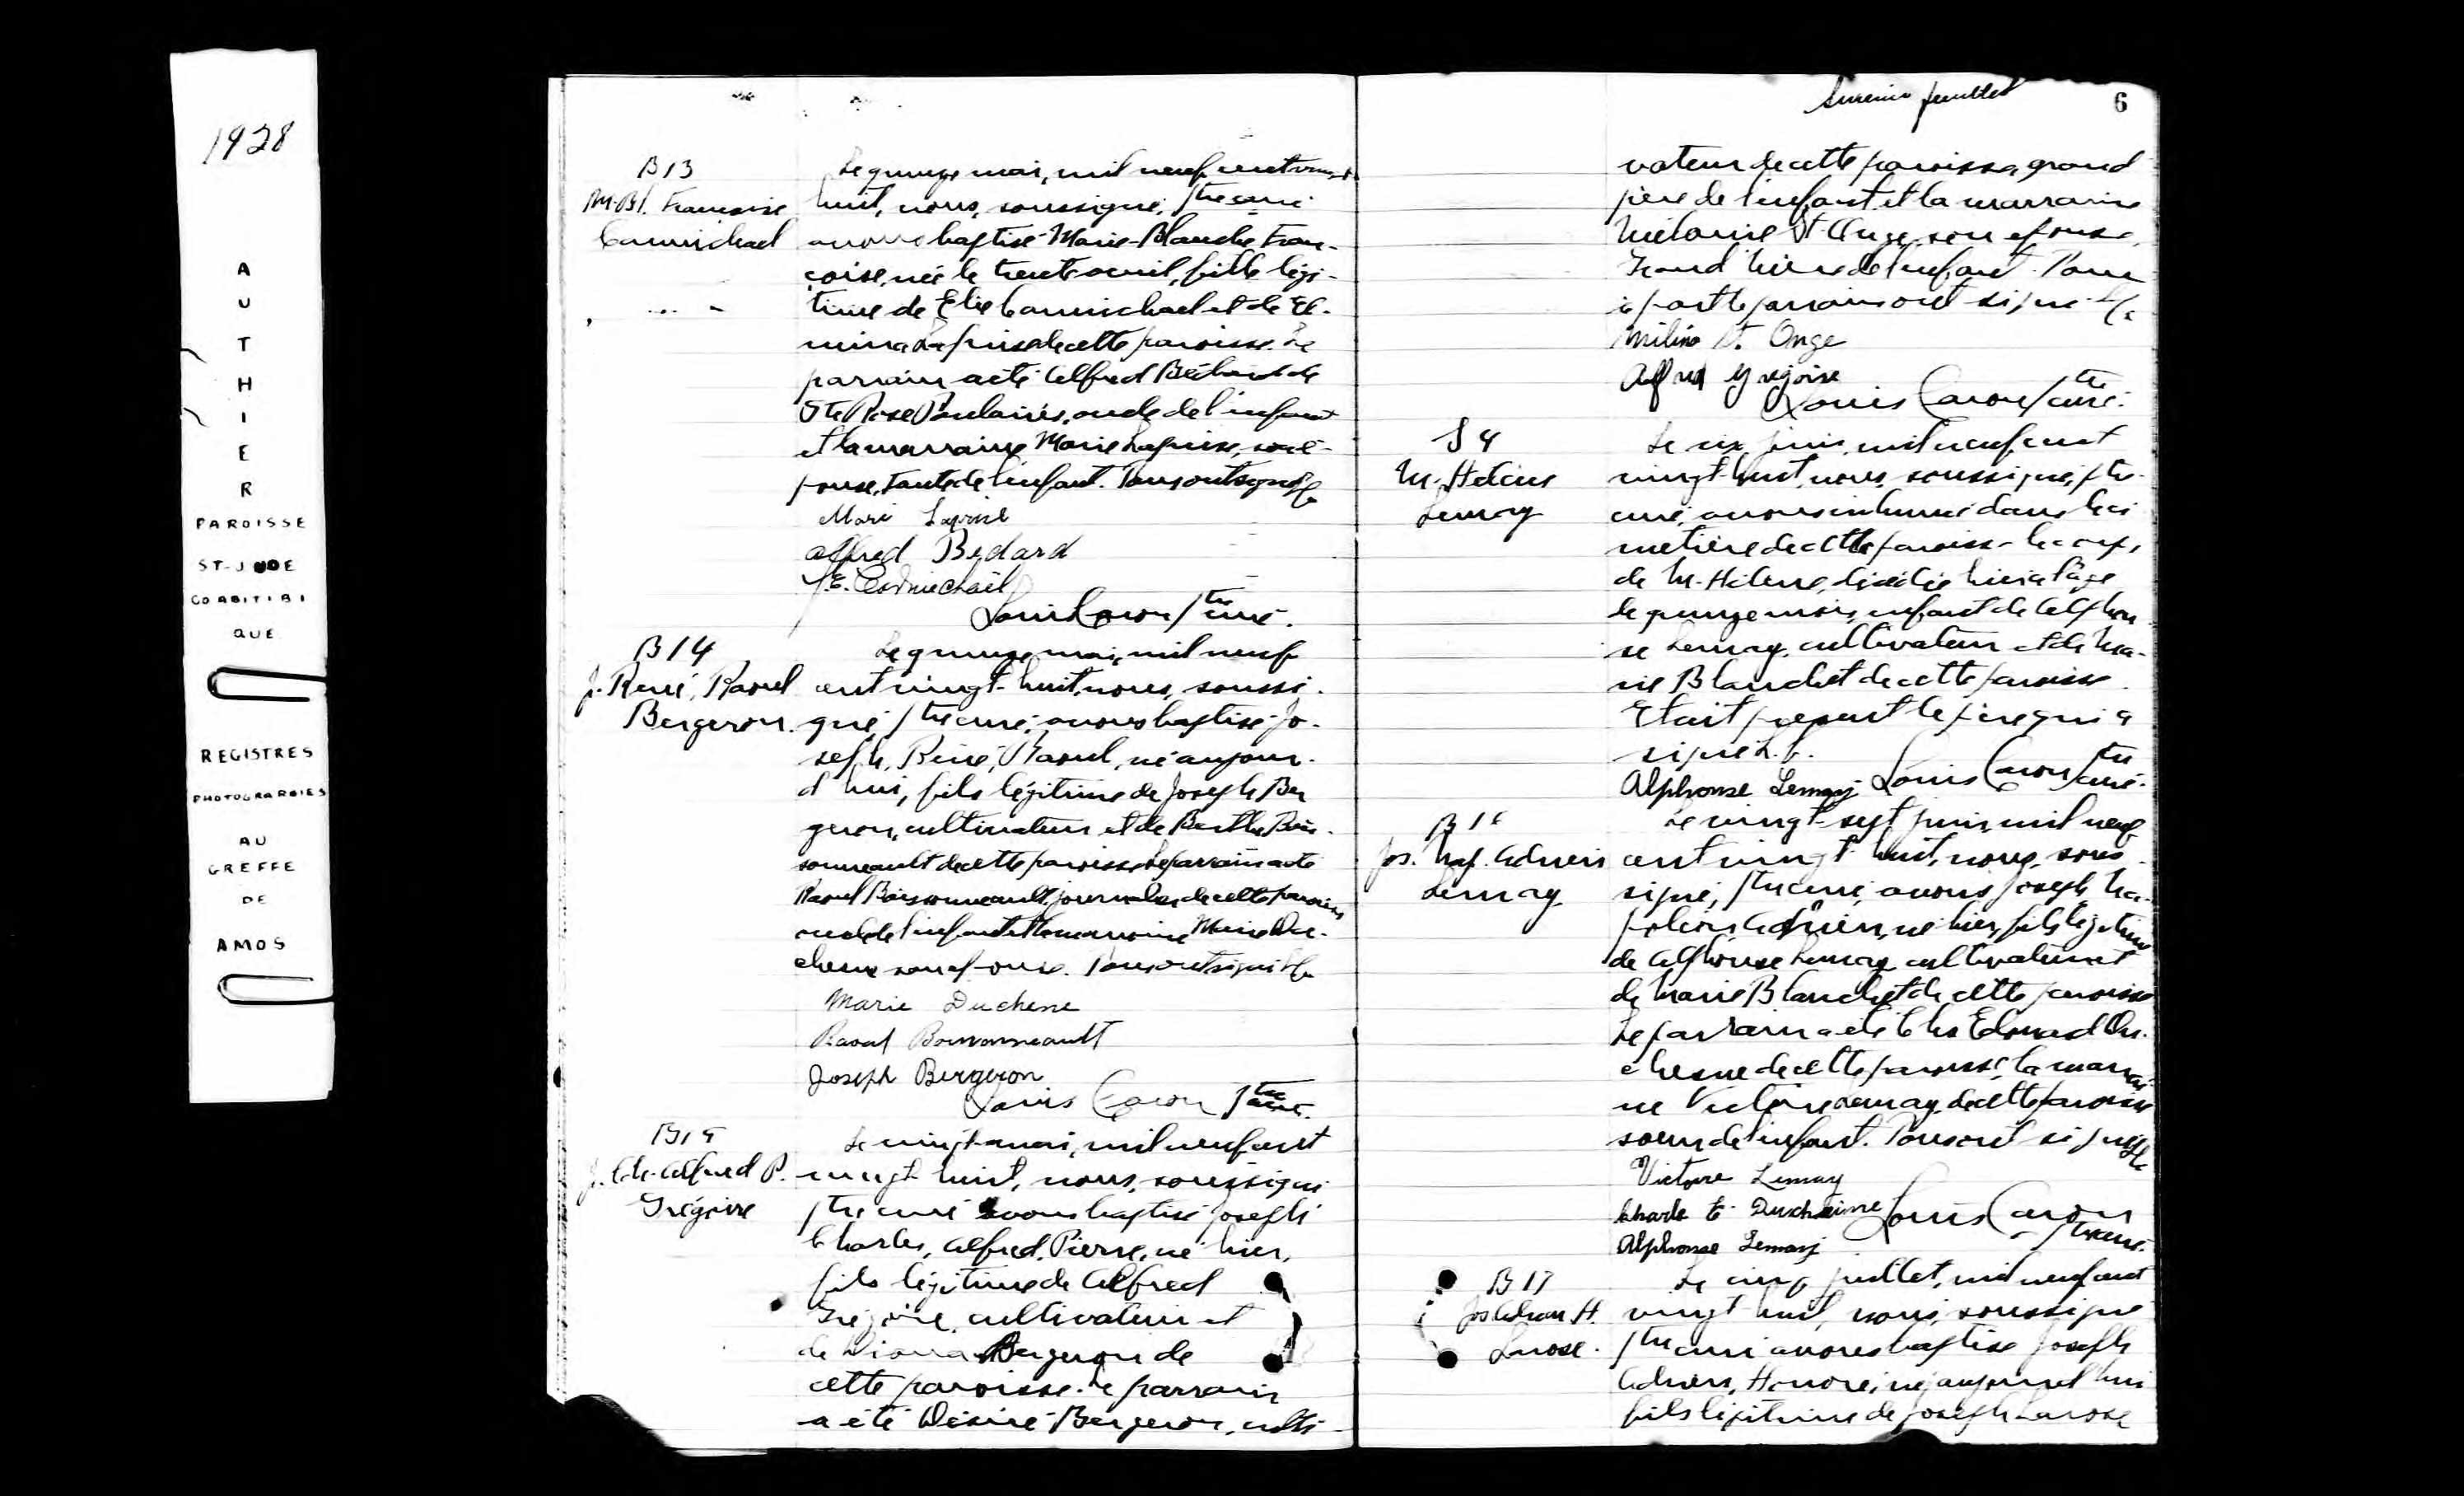 1928
A
U
T
H
I
E
R
PAROISSE
ST-JUDE
CO ABITIBI
QUE
REGISTRES
PHOTOGRAPHIES
AU
GREFFE
DE
AMOS
B13
M. Bl. Françoise
Carmichael
Le quinze mai, mil neuf cent vingt
huit, nous, soussigné, ptre curé
avons baptisé Marie-Blanche Fran-
çoise, née le trente avril, fille légi-
time de Elie Carmichael et de El-
mina Laprise de cette paroisse. Le
parrain a été Alfred Bédard de
Ste Rose Poularies, oncle de l'enfant
et la marraine Marie Laprise, son é-
pouse, tante de l'enfant. Tous ont signé L.f.
Marie Laprise
Alfred Bedard
J.E. Carmichael
Louis Caron ptre curé.
B14
J. René, Raoul
Bergeron.
Le quinze mai, mil neuf
cent vingt-huit, nous, soussi-
gné ptre curé, avons baptisé Jo-
seph, René, Raoul, né aujour-
d'hui, fils légitime de Joseph Ber
geron, cultivateur et de Berthe Bois-
sonneault de cette paroisse. Le parrain a été
Raoul Boissonneault, journalier de cette paroisse
oncle de l'enfant et la marraine Marie Du-
chesne son épouse. Tous ont signé L.f.
Marie Duchesne
Raoul Boissonneault
Joseph Bergeron
Louis Caron ptre curé.
B15
J. Chs. Alfred P.
Grégoire
Le vingt mai, mil neuf cent
vingt huit, nous, soussigné
ptre curé avons baptisé Joseph
Charles, Alfred, Pierre, né hier,
fils légitime de Alfred
Grégoire, cultivateur et
de Diana Bergeron de
cette paroisse. Le parrain
a été Désiré Bergeron, culti-
feuillet
6
vateur de cette paroisse, grand
père de l'enfant et la marraine
St-Onge, son épouse,
Grand'mère de l'enfant. Tous
à part le parrain ont signé L.f.
St. Onge
Alfred Grégoire
Louis Caron ptre curé.
S4
M.
Lemay
Le six juin, mil neuf cent
vingt-huit, nous, soussigné, ptre
curé, avons inhumé dans le ci
metière de cette paroisse le corps
de M. décédée hier à l'âge
de quinze mois, enfant de Alphon
se Lemay, cultivateur et de Ma-
rie Blanchet de cette paroisse.
Etait présent le père qui a
signé L.f.
Alphonse Lemay Louis Caron ptre curé.
B16
Jos. Nap. Adrien
Lemay
Le vingt-sept juin, mil neuf
cent vingt huit, nous, sous
signé, ptre curé, avons Joseph Na-
poléon Adrien, né hier, fils légitime
de Alphonse Lemay cultivateur et
de Marie Blanchet de cette paroisse
Le parrain a été Chs Edouard Du-
chesne de cette paroisse, la marrai
ne Victoire Lemay, de cette paroisse
soeur de l'enfant. Tous ont signé L.f.
Victoire Lemay
Charle E. Duchesne Louis Caron
ptre curé.
Alphonse Lemay
B17
Jos Adrien H.
Larose.
Le cinq juillet, mil neuf cent
vingt huit, nous, soussigné
ptre curé avons baptisé Joseph
Adrien, Honoré, né aujourd'hui
fils légitime de Joseph Larose